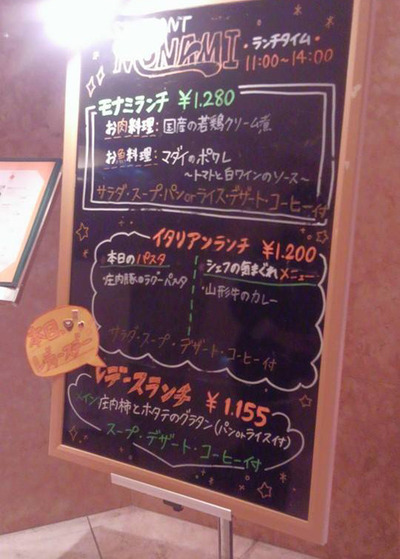 MONAMI
・ランチタイム・
11:00〜14:00
モナミランチ ￥1.280
お肉料理：国産の若鶏クリーム煮
お魚料理：マダイのポワレ
〜トマトと白ワインのソース〜
サラダ・スープ・パンorライス・デザート・コーヒー付
イタリアンランチ ￥1.200
本日のパスタ
庄内豚のラグーパスタ
シェフの気まぐれメニュー
・山形牛のカレー
サラダ・スープ・デザート・コーヒー付
本日の
レディースランチ ￥1.155
メイン 庄内柿とホタテのグラタン(パンorライス付)
スープ・デザート・コーヒー付